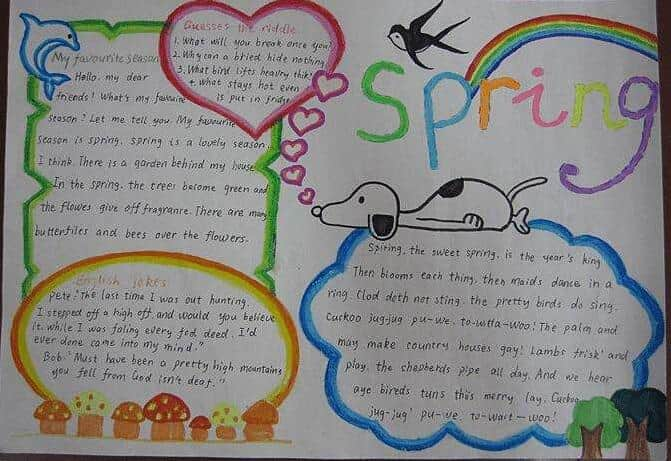 My favourite season
Hello, my dear
friends! What's my favourite
season? Let me tell you. My favourite
season is spring. spring is a lovely season.
I think. There is a garden behind my house
In the spring. the trees become green and
the flowes give off fragranre. There are many
butterfiles and bees over the flowers.
Guesses the riddle
1. What will you break once you
2. Why can a bried hide nothing
3. What bird lifts heavry thik
4. what stays hot even
is put in fridge
Spring
English jokes
Pete: "The last time I was out hunting.
I stepped off a high off and would you believe
it. while I was faling every fed deed. I'd
ever done came into my mind."
Bob. "Must have been a pretty high mountaing
you fell from God isn't deaf."
Spiring, the sweet spring, is the year's king
Then blooms each thing, then maids dance in a
ring. Clod deth not sting. the pretty birds do sing.
Cuckoo jug-jug pu-we. to-witta-woo! The palm and
may make country houses gay! Lambs frisk' and
play. the shepherds pipe all day. And we hear
aye bireds tuns this merry lay. Cuckoo
jug-jug' pu-we. to-wait-woo!